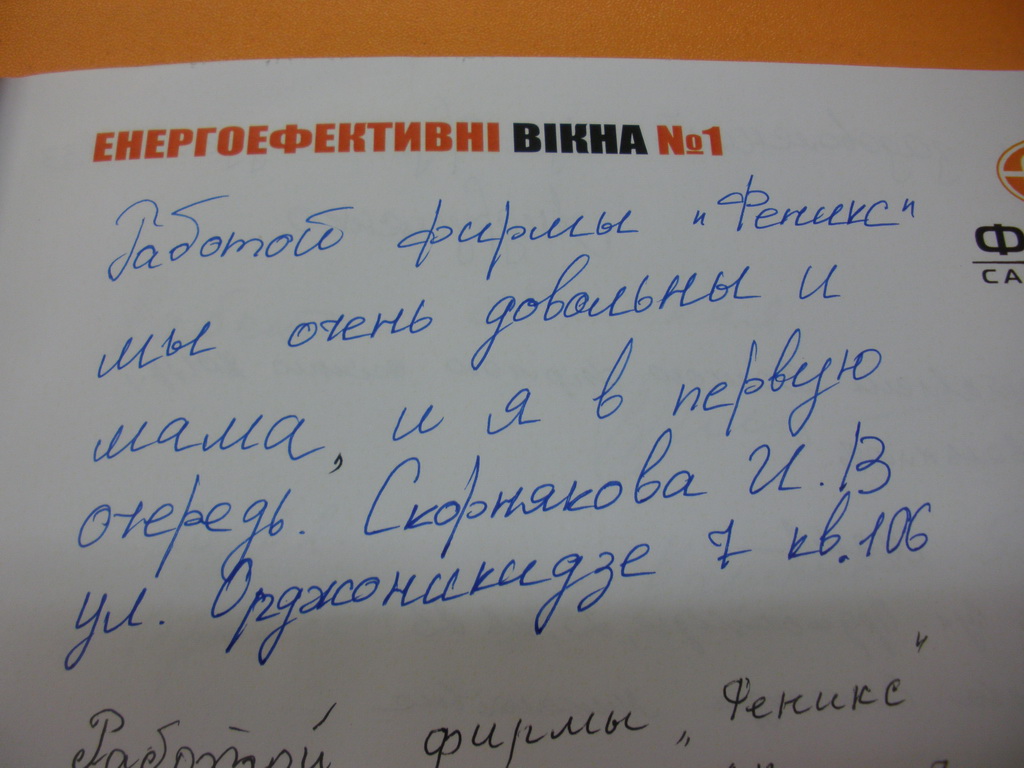 ЕНЕРГОЕФЕКТИВНІ ВІКНА №1
Ф
СА
Работой фирмы "Феникс"
мы очень довольны и
мама, и я в первую
очередь. Скорнякова И.В
ул. Орджоникидзе 7 кв.106
Работой фирмы „Феникс"